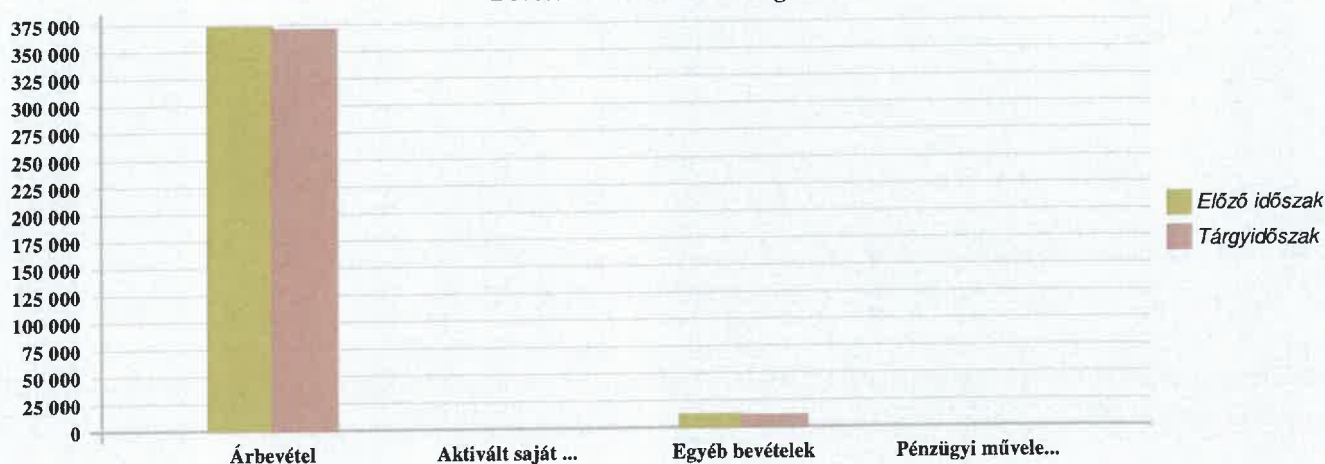 375 000
350 000
325 000
300 000
275 000
250 000
225 000
200 000
175 000
150 000
125 000
100 000
75 000
50 000
25 000
0
Árbevétel
Aktivált saját ...
Egyéb bevételek
Pénzügyi művele...
Előző időszak
Tárgyidőszak